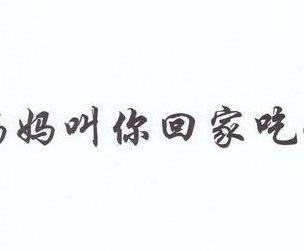 妈妈叫你回家吃